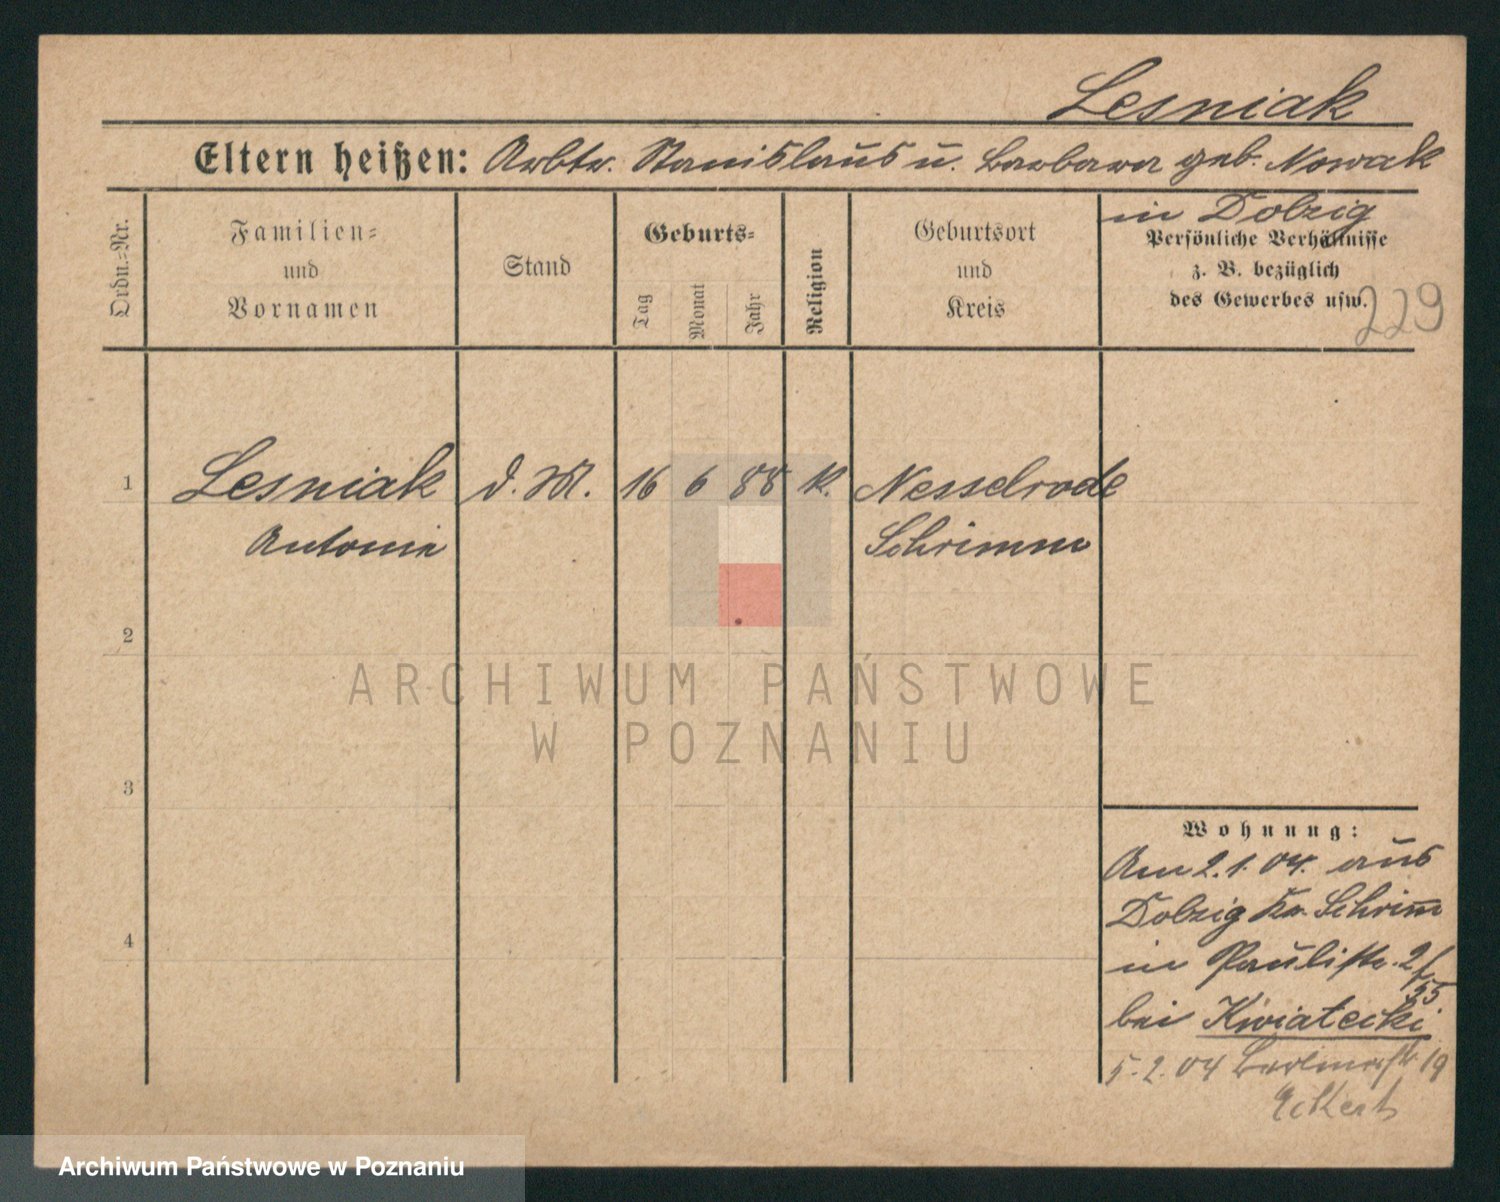 Lesniak
Eltern heißen: Arbtr. Stanislaus u. Barbara geb. Nowak
in Dolzig
Ordn.-Nr.
Familien-
und
Vornamen
Stand
Geburts-
Tag
Monat
Jahr
Religion
Geburtsort
und
Kreis
Persönliche Verhältnisse
z. B. bezüglich
des Gewerbes usw.
229
1
Lesniak d. M. 16 6 88 k. Nesselrode
Antonie Schrimm
2
3
4
Wohnung:
Am 2.1.04. aus
Dolzig Kr. Schrimm
in Paulistr. 2/
55
bei Kwiatecki
5.2.04 Berlinerstr 19
Eckert
ARCHIWUM PAŃSTWOWE
W POZNANIU
Archiwum Państwowe w Poznaniu